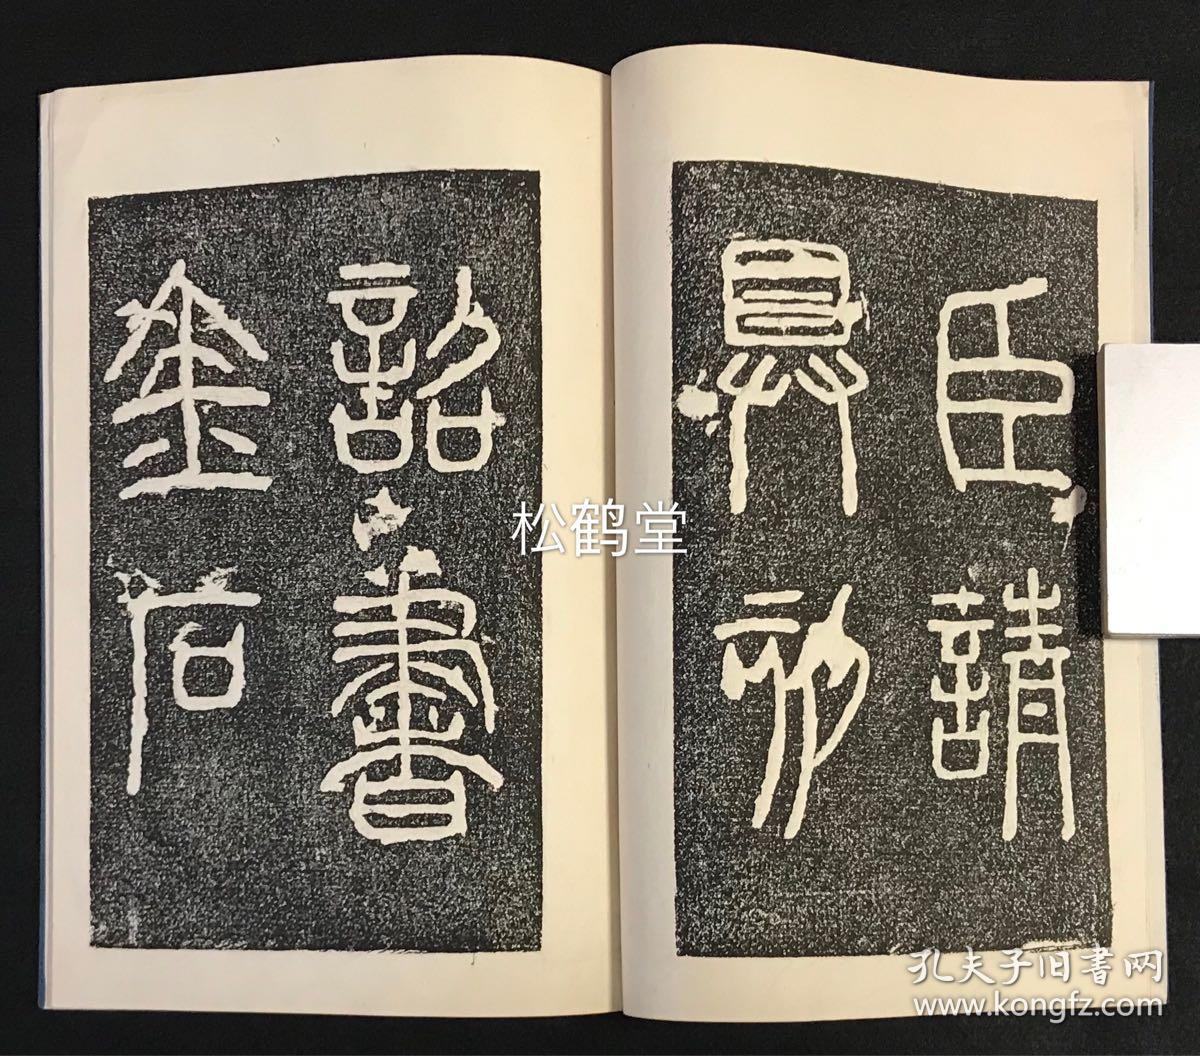 臣請
具刻
詔書
金石
松鹤堂
孔夫子旧书网
www.kongfz.com